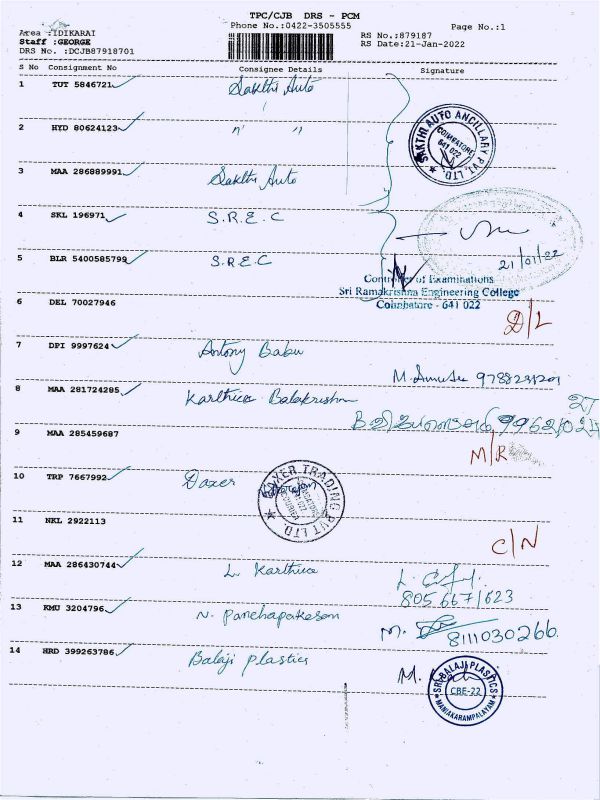 TPC/CJB DRS - PCM
Phone No.:0422-3505555 Page No.:1
Area :IDIKARAI
Staff :GEORGE
DRS No. :DCJB87918701
RS No.:879187
RS Date:21-Jan-2022
S No Consignment No Consignee Details Signature
1 TUT 5846721 Sakthi Auto
2 HYD 80624123 " "
SAKTHI AUTO ANCILLARY PVT. LTD.
COIMBATORE
641 022
3 MAA 286889991 Sakthi Auto
4 SKL 196971 S.R.E.C
5 BLR 5400585799 S.R.E.C
21/01/22
Controller of Examinations
Sri Ramakrishna Engineering College
Coimbatore - 641 022
6 DEL 70027946 D/L
7 DPI 9997624 Antony Babu
8 MAA 281724285 Karthica Balakrishnan
9 MAA 285459687 M/R
10 TRP 7667992 Daxer
DAXER TRADING PVT LTD.
11 NKL 2922113 C/N
12 MAA 286430744 L. Karthica
8056671623
13 KMU 3204796 N. Panchapakesan M. 8111030266
14 HRD 399263786 Balaji plastics M.
SRI BALAJI PLASTICS
CBE-22
MANIAKARAMPALAYAM